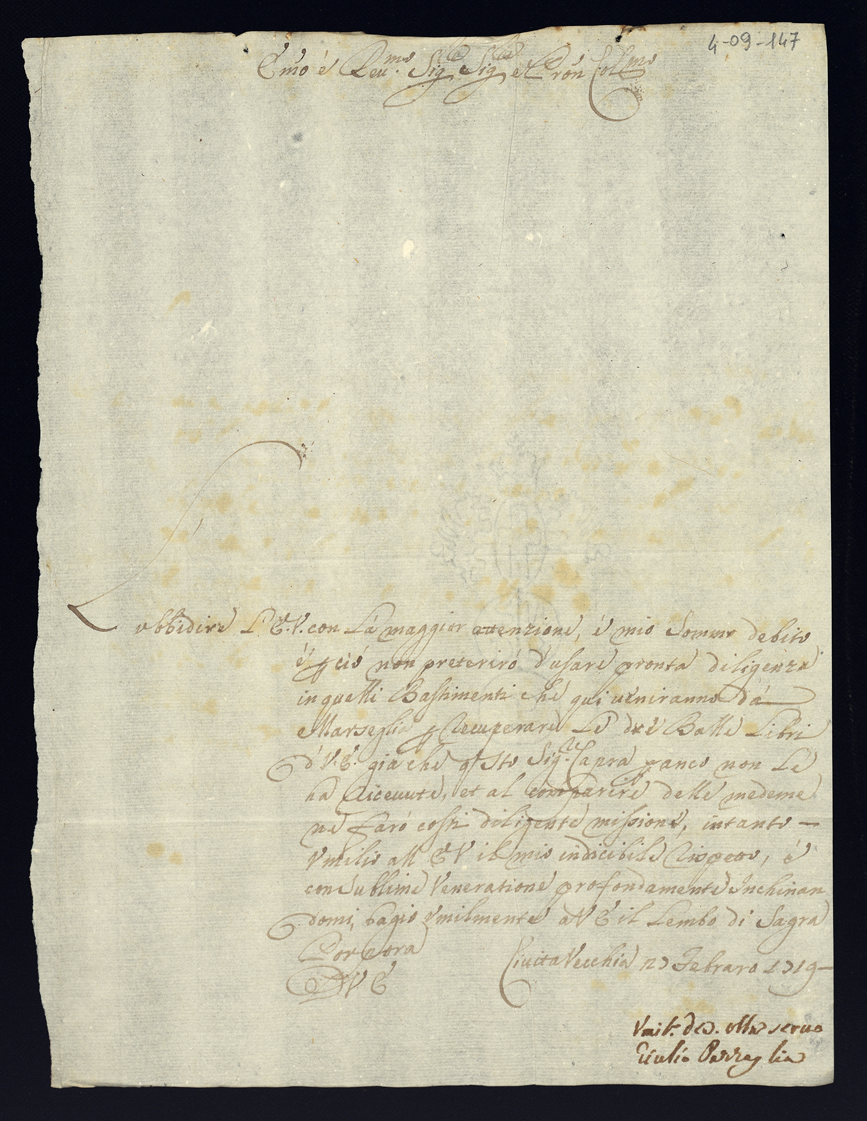 4-09-147
Emo è Reu.mo Sig.re Sig.re e Pron Col.mo
L'obbidire L'E.V. con la maggior attenzione, è mio sommo debito
è p ciò non preterirò d'usare pronta diligenza
in quelli Bastimenti che qui veniranno da
Marseglia p recuperare le due Balle Libri
d'V.E. già che qsto Sig.re Capra p anco non le
ha riceuute, et al comparire delle medeme
ne farò costi diligente missione, intanto
Vmilio all'EV il mio indicibile rispetto, è
con sublime Veneratione profondamente Inchinan
domi, bagio vmilmente a VE il Lembo di Sagra
Porpora
D VE Ciuita Vecchia 27 Febraro 1719
Vmil.
seruo
Giulio